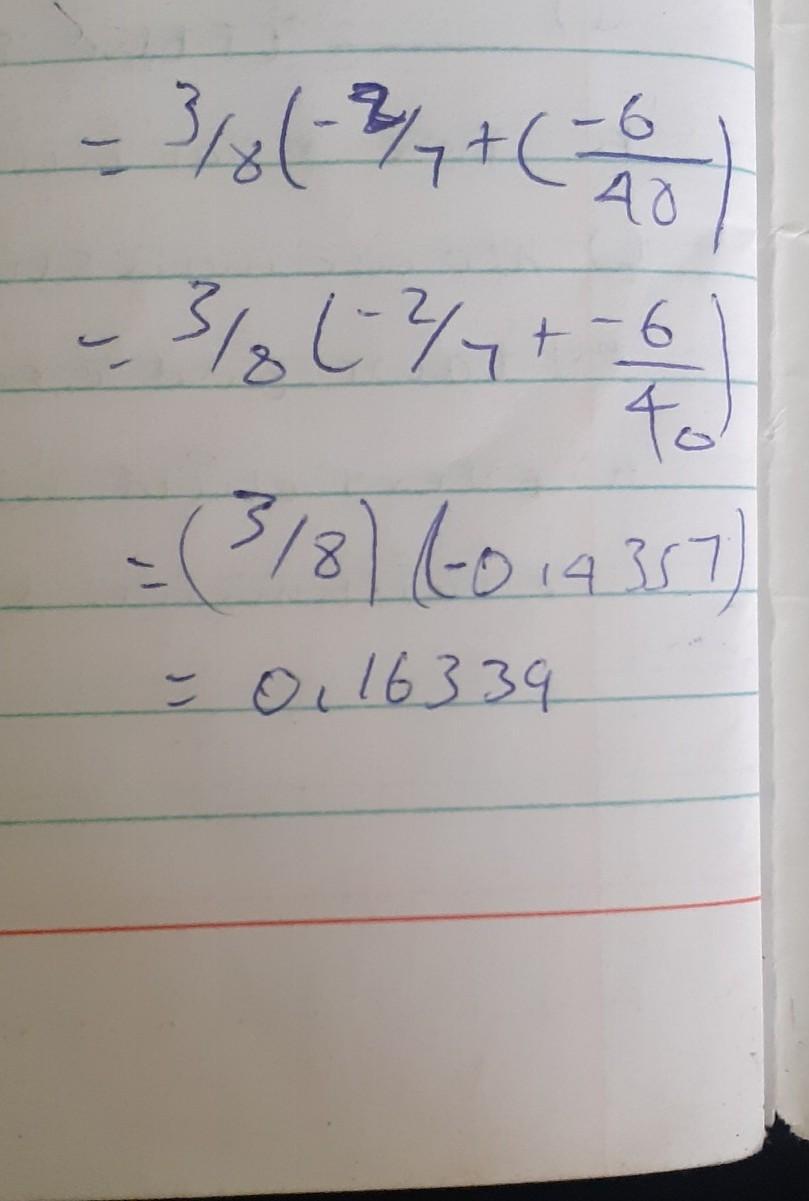 = 3/8(-2/7 + (-6/40)
= 3/8 (-2/7 + -6/40)
= (3/8) (-0.4357)
= 0.16339